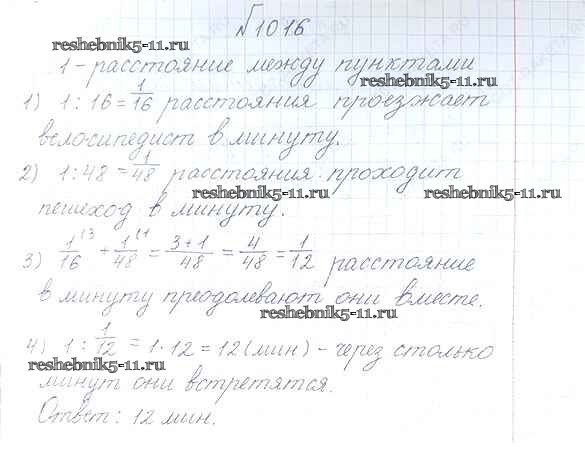 №1016
reshebnik5-11.ru
1 - расстояние между пунктами
reshebnik5-11.ru
1) 1 : 16 = 1/16 расстояния проезжает
велосипедист в минуту.
2) 1 : 48 = 1/48 расстояния проходит
reshebnik5-11.ru reshebnik5-11.ru
пешеход в минуту.
3) 1/16 (3 + 1/48 (1 = 3+1/48 = 4/48 = 1/12 расстояние
в минуту преодолевают они вместе.
reshebnik5-11.ru
4) 1 : 1/12 = 1 · 12 = 12 (мин) - через столько
reshebnik5-11.ru
минут они встретятся.
Ответ: 12 мин.